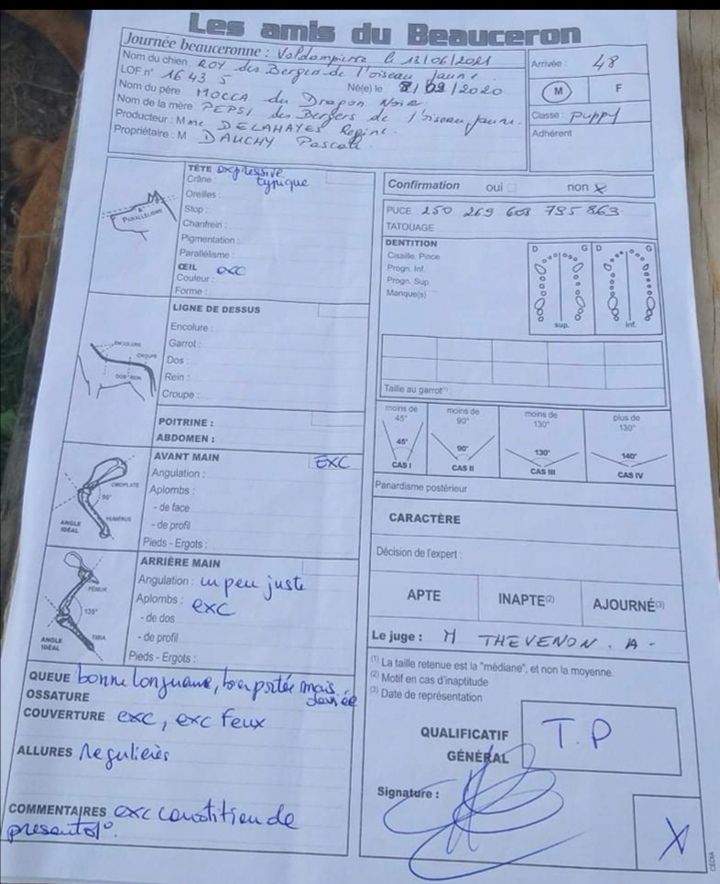 Les amis du Beauceron
Journée beauceronne : Valdampierre le 13/06/2021
Nom du chien ROY des Bergers de l'oiseau Jaune.
LOF n° 16435 Né(e) le 2/09/2020
Nom du père MOCCA du Dragon Noir
Nom de la mère PEPSI des Bergers de l'oiseau Jaune.
Producteur : M me DELAHAYES Regine.
Propriétaire : M DAUCHY Pascal
Arrivée : 48
M F
Classe : puppy
Adhérent
TÊTE expressive
Crâne : typique
Oreilles :
Stop :
Chanfrein :
Pigmentation :
Parallélisme :
ŒIL exc
Couleur :
Forme :
PARALLÉLISME
LIGNE DE DESSUS
Encolure :
Garrot :
Dos :
Rein :
Croupe :
ENCOLURE
CROUPE
DOS REIN
POITRINE :
ABDOMEN :
AVANT MAIN EXC
Angulation :
Aplombs :
- de face
- de profil
Pieds - Ergots :
OMOPLATE
90°
HUMÉRUS
ANGLE IDÉAL
ARRIÈRE MAIN
Angulation : un peu juste
Aplombs : exc
- de dos
- de profil
Pieds - Ergots :
FÉMUR
135°
TIBIA
ANGLE IDÉAL
QUEUE bonne longueur, bien portée mais
OSSATURE
COUVERTURE exc, exc feux
ALLURES Regulières
COMMENTAIRES exc condition de
presentat°.
Confirmation oui non X
PUCE 250 269 608 795 863
TATOUAGE
DENTITION
Cisaille, Pince
Progn. Inf.
Progn. Sup.
Manque(s)
D G D G
sup. inf.
Taille au garrot(1)
moins de 45° moins de 90° moins de 130° plus de 130°
45° 90° 130° 140°
CAS I CAS II CAS III CAS IV
Panardisme postérieur
CARACTÈRE
Décision de l'expert :
APTE INAPTE(2) AJOURNÉ(3)
Le juge : M THEVENON. A-
(1) La taille retenue est la "médiane", et non la moyenne.
(2) Motif en cas d'inaptitude
(3) Date de représentation
QUALIFICATIF GÉNÉRAL T.P
Signature :
X
CÉDIA